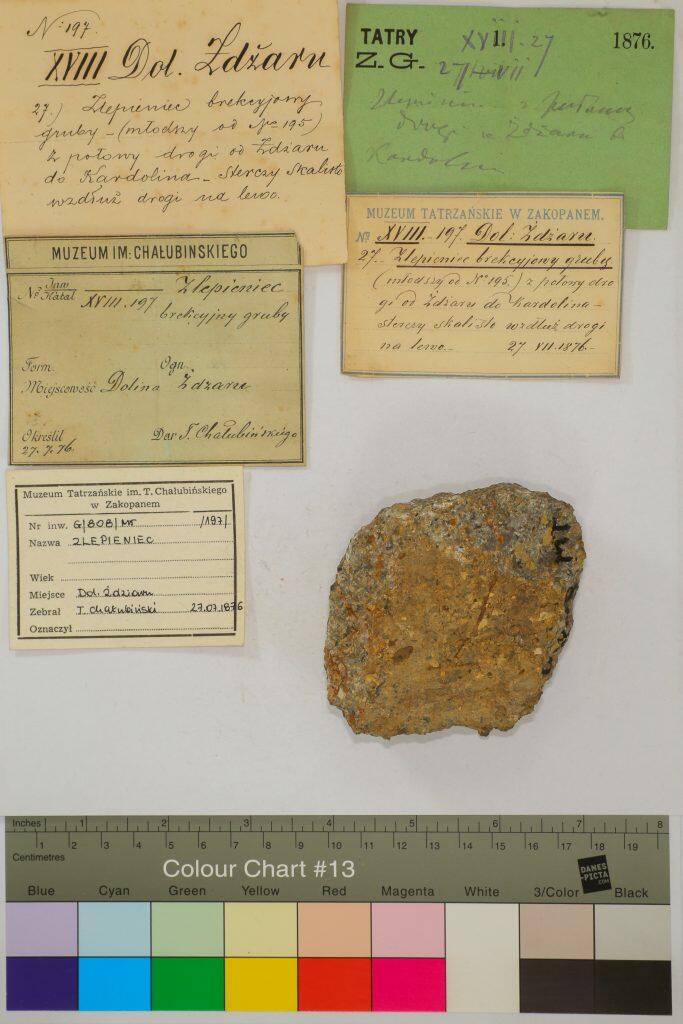 No: 197.
XVIII Dol. Zdžaru
27.) Zlepieniec brekcyjowy
gruby – (młodszy od No 195)
z połowy drogi od Ždžaru
do Kardolina – sterczy skalisto
wzdłuż drogi na lewo.
TATRY XVIII-27 1876.
Z. G. 27 VII
Zlepieniec z połowy
drogi w Ždžaru
Kardolin
MUZEUM TATRZAŃSKIE W ZAKOPANEM.
No XVIII. 197. Dol: Ždžaru.
27. Zlepieniec brekcyjowy gruby
(młodszy od No 195.) z połowy dro
gi od Ždžaru do Kardolina –
sterczy skalisto wzdłuż drogi
na lewo. 27. VII. 1876.
MUZEUM IM: CHAŁUBINSKIEGO
No Inw Katal XVIII.197 Zlepieniec
brekcyjny gruby
Form. Ogn.
Miejscowość Dolina Ždżaru
Określił Dar T. Chałubińskiego
27.7.76.
Muzeum Tatrzańskie im. T. Chałubińskiego
w Zakopanem
Nr inw. G/808/MT /197/
Nazwa ZLEPIENIEC
Wiek
Miejsce Dol. Ždziaru
Zebrał T. Chałubiński 27.07.1876
Oznaczył
MT
Inches 1 2 3 4 5 6 7 8
1 2 3 4 5 6 7 8 9 10 11 12 13 14 15 16 17 18 19
Centimetres
Colour Chart #13
DANES-PICTA.COM
Blue Cyan Green Yellow Red Magenta White 3/Color Black